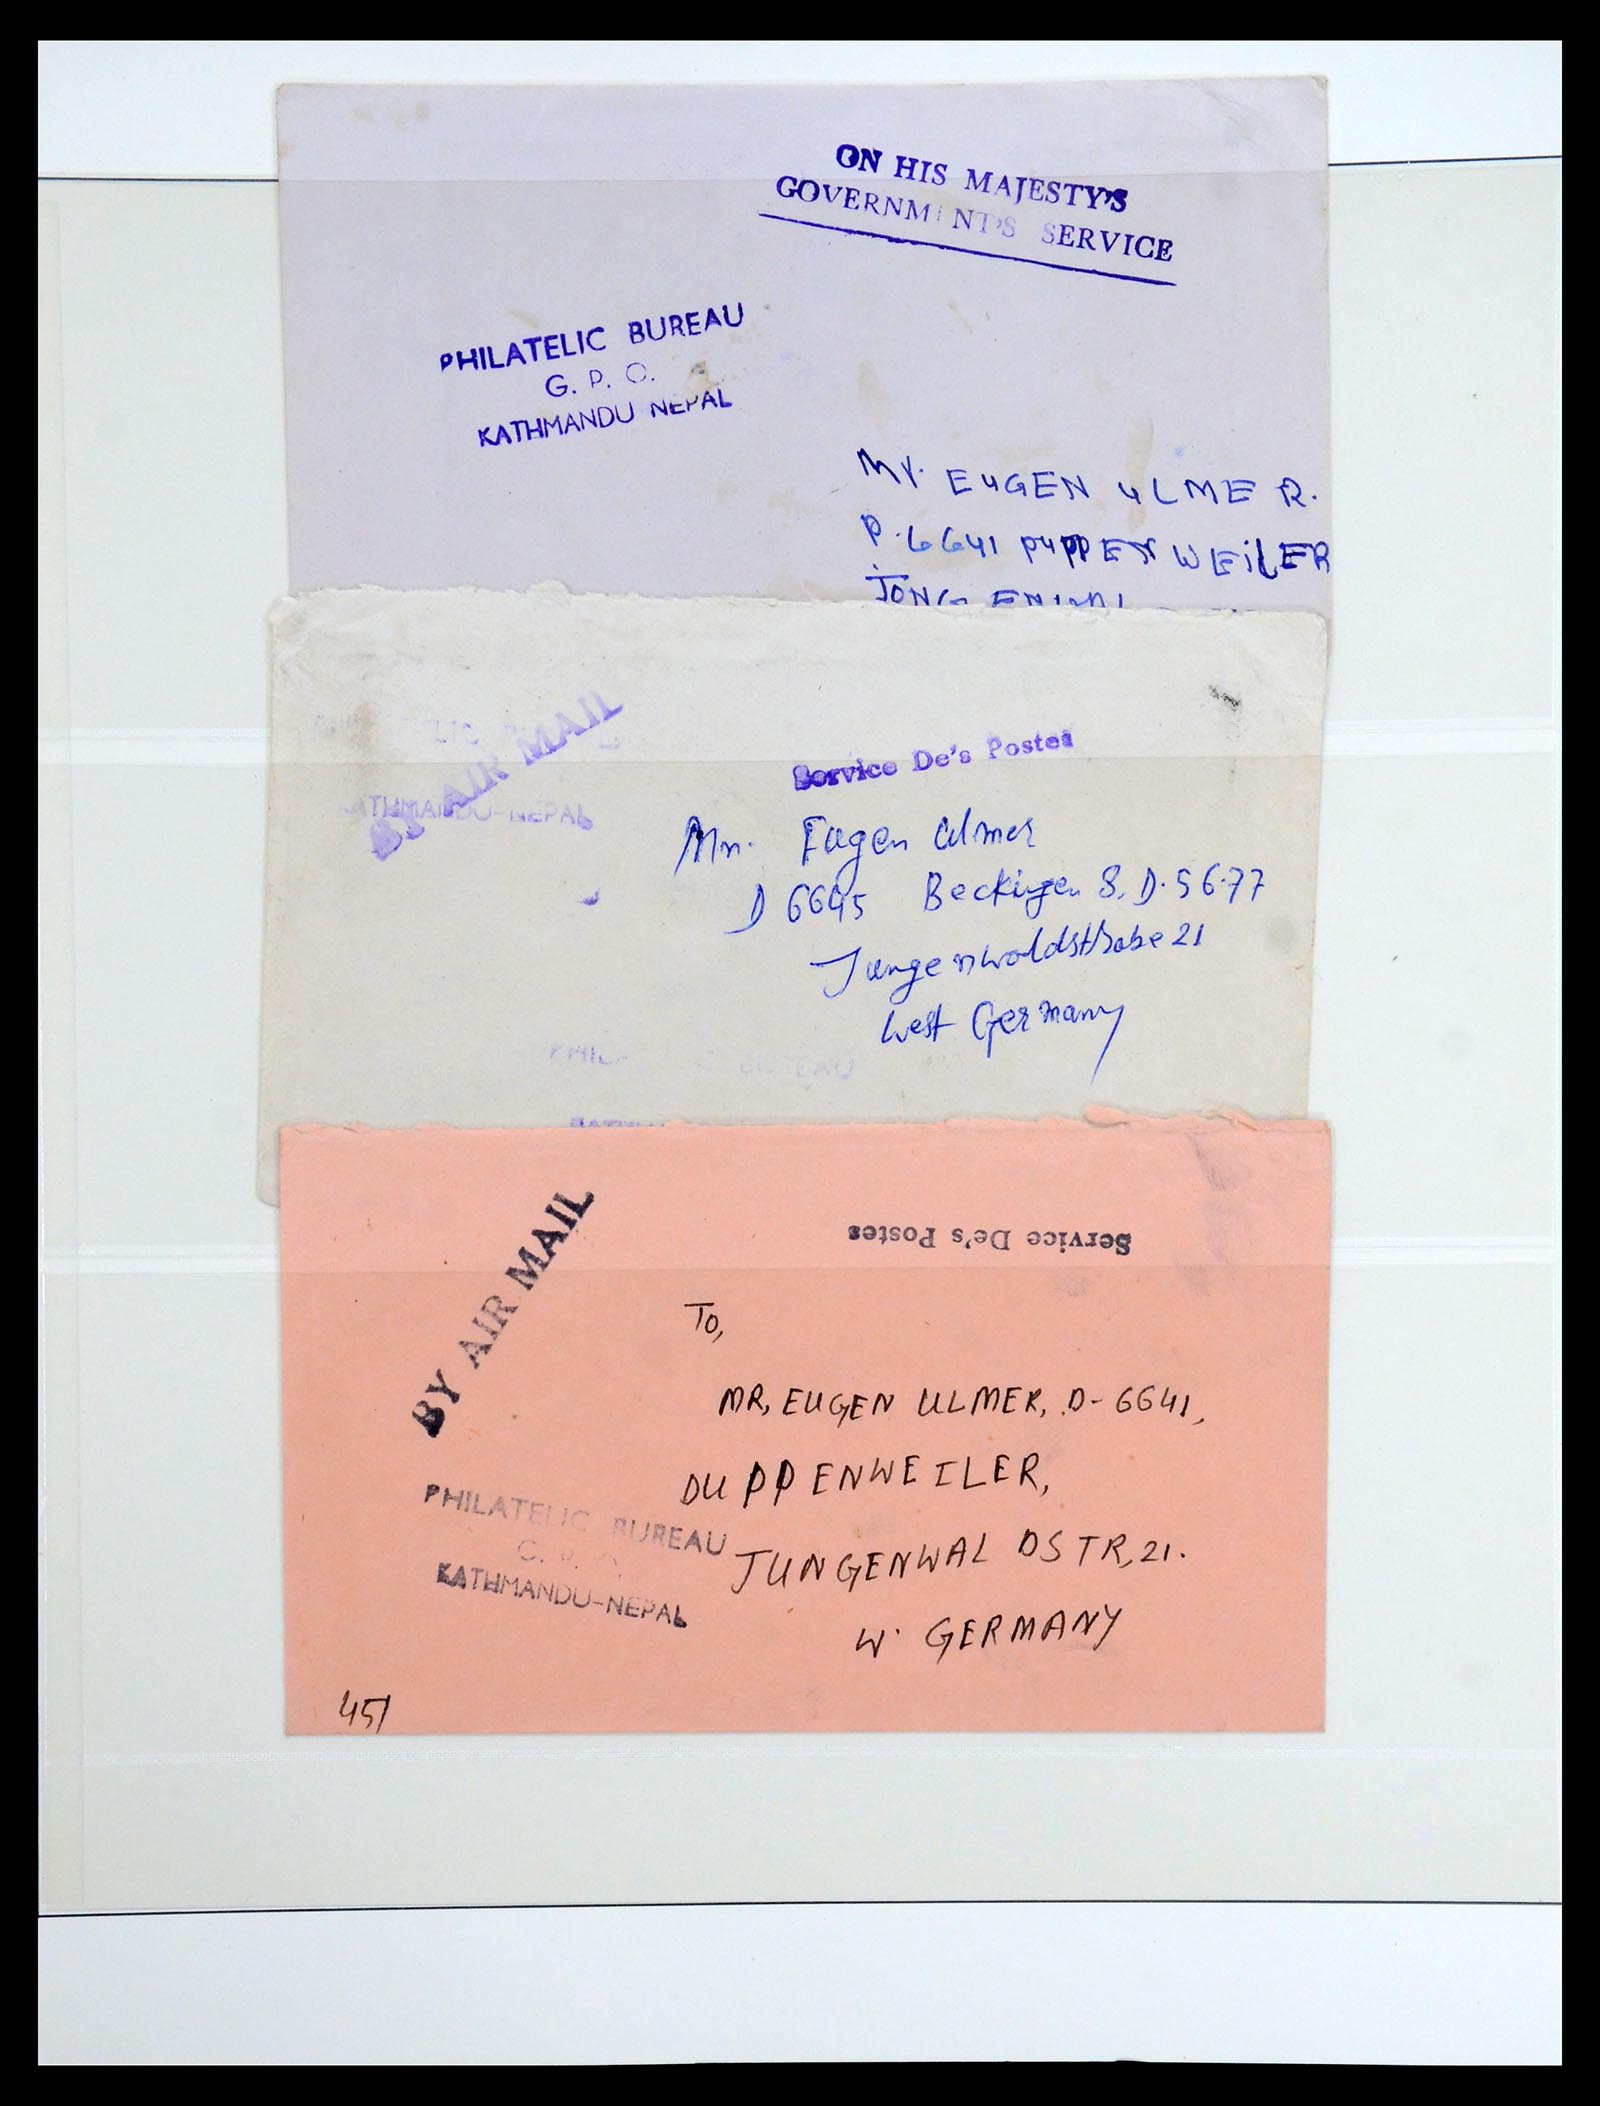 ON HIS MAJESTY'S
GOVERNM NT'S SERVICE
PHILATELIC BUREAU
G. P. O.
KATHMANDU NEPAL
Mr. EUGEN ULMER.
P. 6641 PUPPENWEILER
BY AIR MAIL
KATHMANDU-NEPAL
Service De's Postes
Mr. Eugen Ulmer
D 6645 Beckingen 8. D. 5677
Jungenwoldsthabe 21
West Germany
PHIL BUREAU
BY AIR MAIL
Service De's Postes
To,
MR, EUGEN ULMER, D-6641,
DUPPENWEILER,
JUNGENWAL DSTR, 21.
W. GERMANY
PHILATELIC BUREAU
G. P. O.
KATHMANDU-NEPAL
451